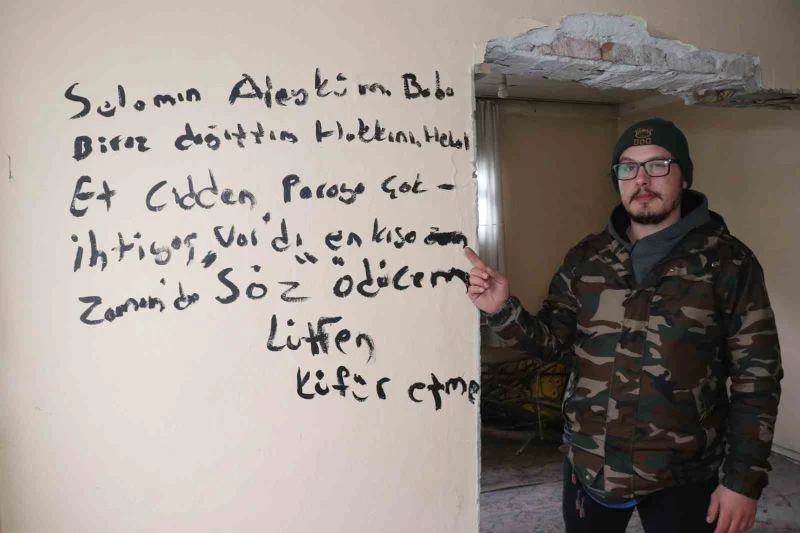 Selamın Aleyküm Baba
Biraz dağıttım Hakkını Helal
Et Cidden Paraya Çok -
ihtiyaç Var'dı en kısa
Zaman'da "Söz" Ödücem
Lütfen
Küfür etme